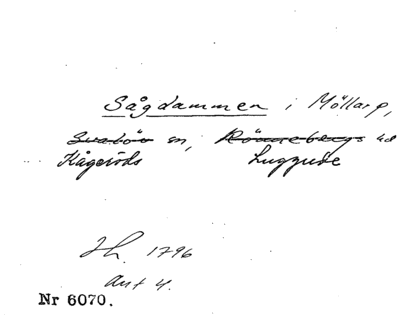 Sågdammen i Möllarp,
Svalöv sn, Rönnebergs hd
Kågeröds Luggude
Jh. 1796
Akt 4.
Nr 6070.